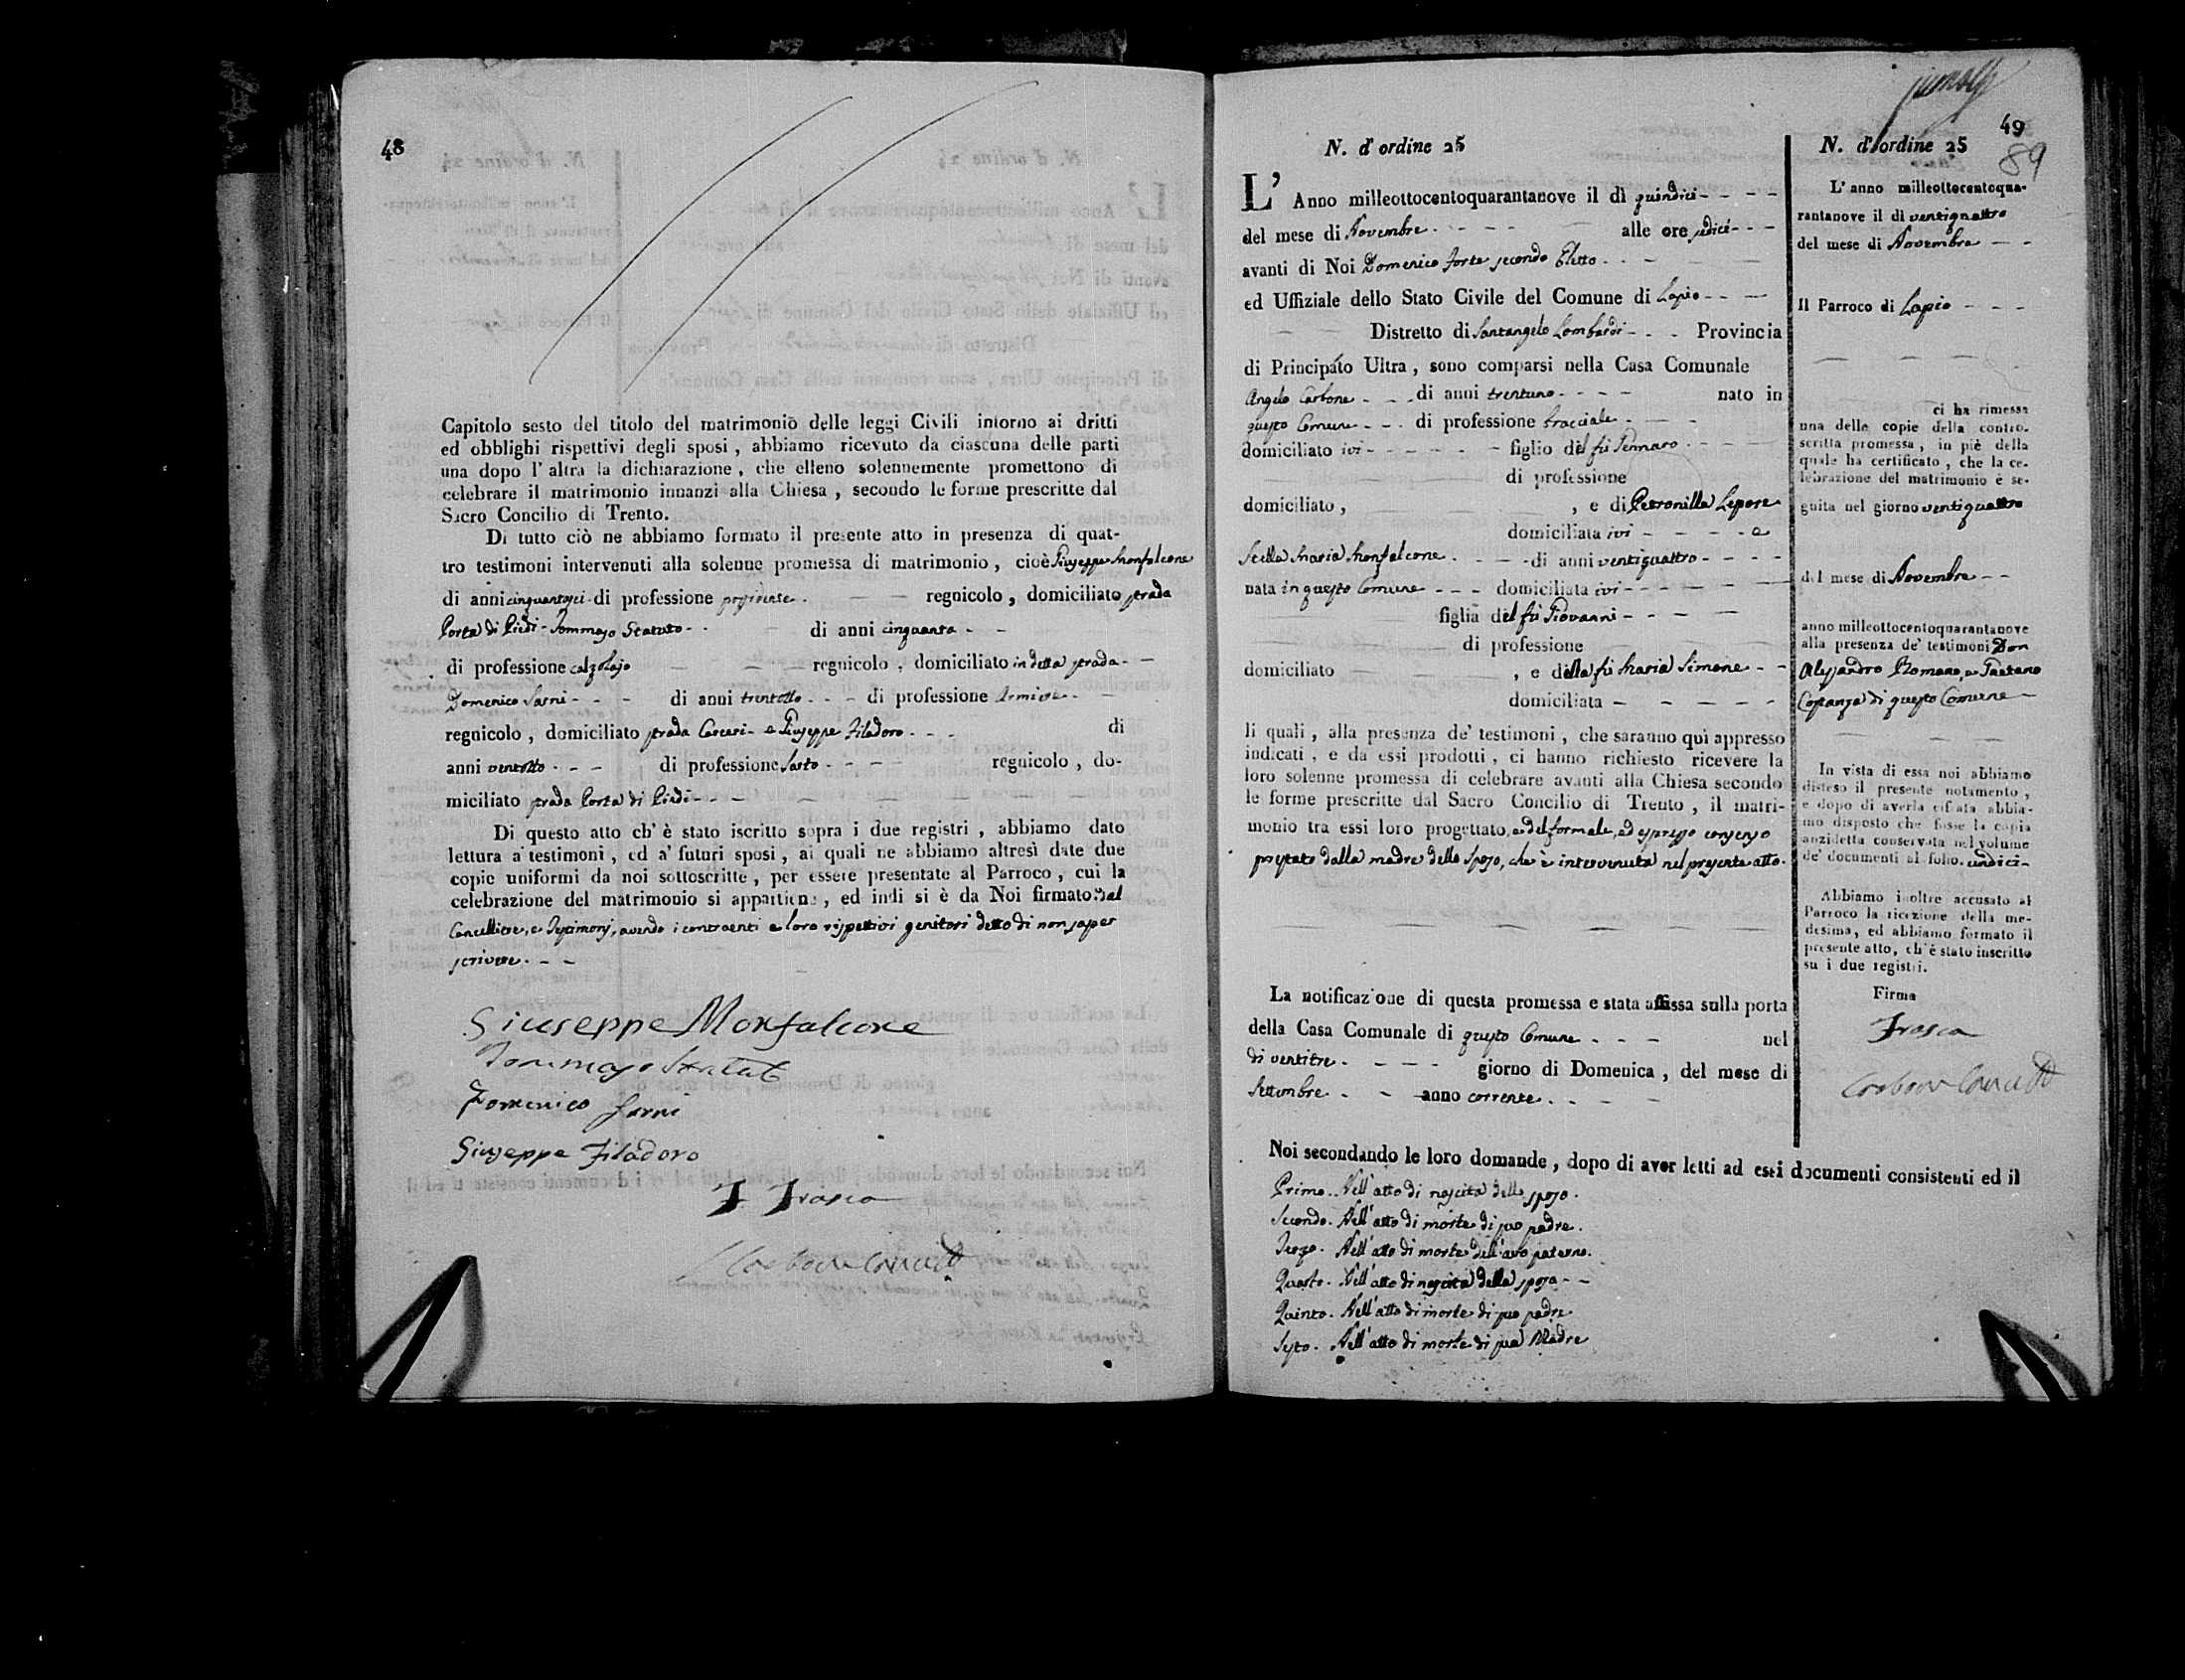 48
Capitolo sesto del titolo del matrimonio delle leggi Civili intorno ai dritti
ed obblighi rispettivi degli sposi , abbiamo ricevuto da ciascuna delle parti
una dopo l' altra la dichiarazione , che elleno solennemente promettono di
celebrare il matrimonio innanzi alla Chiesa , secondo le forme prescritte dal
Sacro Concilio di Trento.
Di tutto ciò ne abbiamo formato il presente atto in presenza di quat-
tro testimoni intervenuti alla solenne promessa di matrimonio , cioè Giuseppe Monfalcone
di anni cinquantasei di professione possidente regnicolo , domiciliato strada
Porta di Piedi - Tommaso Statuto - - di anni cinquanta - -
di professione calzolajo regnicolo , domiciliato in detta strada - -
Domenico Sarni - - - di anni trentotto - - - di professione
regnicolo , domiciliato strada Carceri - e Giuseppe Filadoro - - - di
anni ventotto - - - di professione Sarto - - - - regnicolo , do-
miciliato strada Porta di Piedi - - -
Di questo atto ch' è stato iscritto sopra i due registri , abbiamo dato
lettura a' testimoni , ed a' futuri sposi , ai quali ne abbiamo altresì date due
copie uniformi da noi sottoscritte , per essere presentate al Parroco , cui la
celebrazione del matrimonio si appartiene , ed indi si è da Noi firmato dal
Cancelliere, e Testimonj, avendo i contraenti e loro rispettivi genitori detto di non saper
scrivere - - -
Giuseppe Monfalcone
Tommaso Statuto
Domenico Sarni
Giuseppe Filadoro
F Frasca
49
89
N. d' ordine 25
L' Anno milleottocentoquarantanove il dì quindici - - - -
del mese di Novembre - - - - alle ore sedici - - -
avanti di Noi Domenico Forte secondo Eletto - -
ed Uffiziale dello Stato Civile del Comune di Lapio - - -
Distretto di Santangelo Lombardi - - - Provincia
di Principato Ultra , sono comparsi nella Casa Comunale
Angelo Carbone - - - di anni trentuno - - - - nato in
questo Comune - - - di professione bracciale - -
domiciliato ivi - - - - - - figlio del fù Gennaro - - - -
di professione
domiciliato , , e di Petronilla Lepore
domiciliata ivi - - - - e
Stella Maria Monfalcone - - - - di anni ventiquattro - - - -
nata in questo Comune - - - domiciliata ivi - - - -
figlia del fù Giovanni - - - -
di professione
domiciliato , e della fù Maria Simone - -
domiciliata - - - - -
li quali , alla presenza de' testimoni , che saranno quì appresso
indicati , e da essi prodotti , ci hanno richiesto ricevere la
loro solenne promessa di celebrare avanti alla Chiesa secondo
le forme prescritte dal Sacro Concilio di Trento , il matri-
monio tra essi loro progettato, e del formale, ed espresso consenso
prestato dalla madre dello Sposo, che è intervenuta nel presente atto.
La notificazione di questa promessa e stata affissa sulla porta
della Casa Comunale di questo Comune - - - nel
dì ventitre - - - - giorno di Domenica , del mese di
Settembre - - anno corrente - - - -
Noi secondando le loro domande , dopo di aver letti ad essi i documenti consistenti ed il
Primo. Nell' atto di nascita dello sposo.
Secondo. Nell' atto di morte di suo padre.
Terzo. Nell' atto di morte dell' avo paterno.
Quarto. Nell' atto di nascita della sposa - -
Quinto. Nell' atto di morte di suo padre
Sesto. Nell' atto di morte di sua Madre
N. d' ordine 25
L' anno milleottocentoqua-
rantanove il dì ventiquattro
del mese di Novembre - -
Il Parroco di Lapio - - -
ci ha rimessa
una delle copie della contro-
scritta promessa , in piè della
quale ha certificato , che la ce-
lebrazione del matrimonio è se-
guita nel giorno ventiquattro
del mese di Novembre - -
anno milleottocentoquarantanove
alla presenza de' testimoni Don
Alessandro Romano, e Gaetano
Costanza di questo Comune -
In vista di essa noi abbiamo
disteso il presente notamento ,
e dopo di averla cifrata abbia-
mo disposto che fosse la copia
anzidetta conservata nel volume
de' documenti al folio. undici -
Abbiamo inoltre accusato al
Parroco la ricezione della me-
desima , ed abbiamo formato il
presente atto, ch' è stato inscritto
su i due registri.
Firma
Frasca